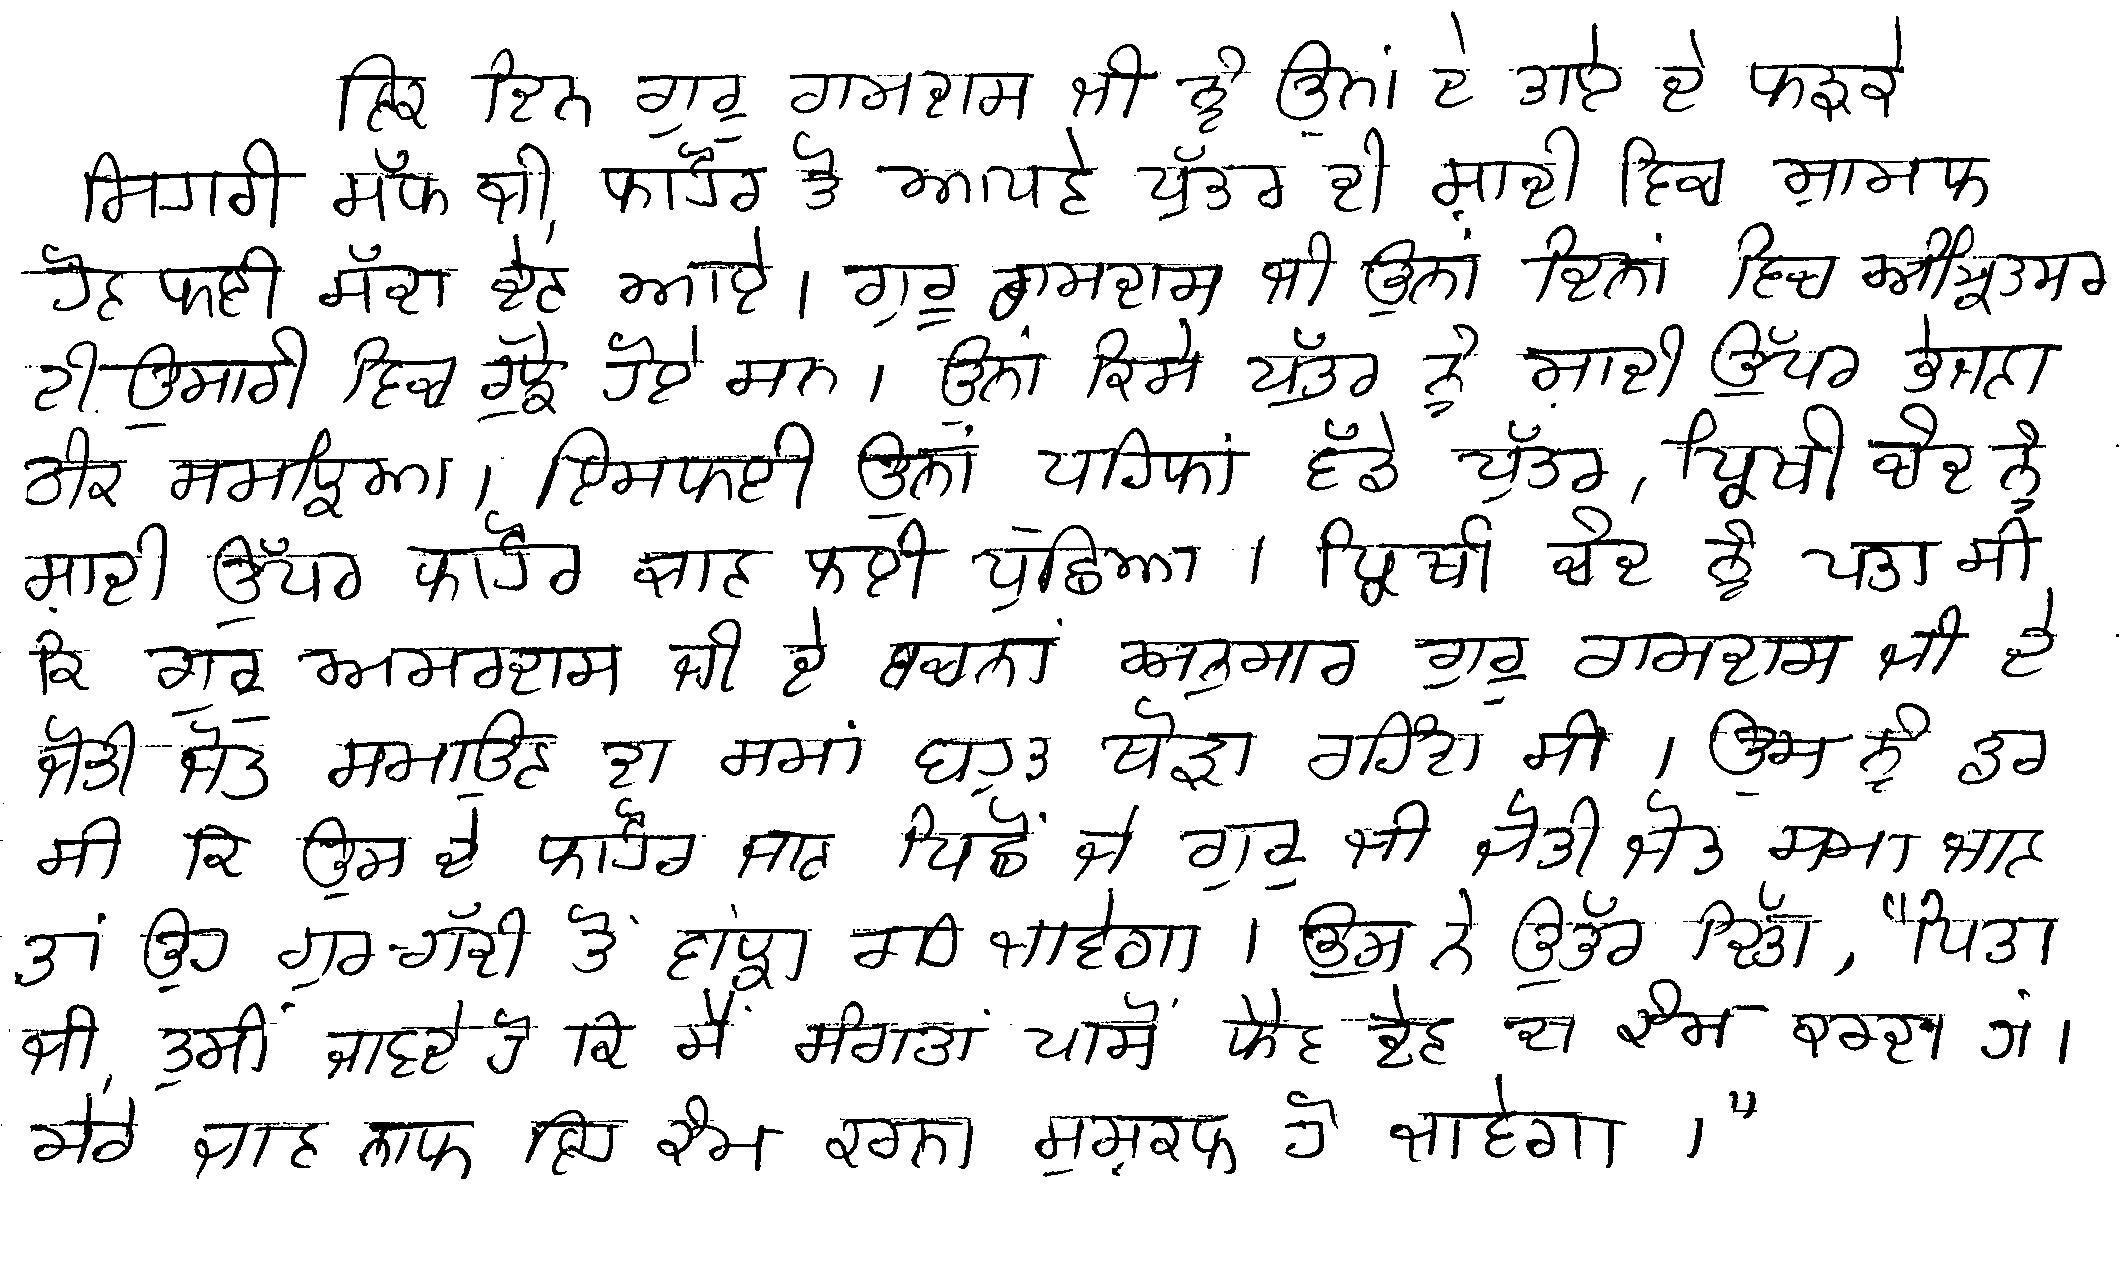 ਇਕ ਦਿਨ ਗੁਰੂ ਰਾਮਦਾਸ ਜੀ ਨੂੰ ਉਨਾਂ ਦੇ ਤਾਏ ਦੇ ਲੜਕੇ
ਸਿਹਾਰੀ ਮੱਲ ਜੀ, ਲਾਹੌਰ ਤੋਂ ਆਪਣੇ ਪੁੱਤਰ ਦੀ ਸ਼ਾਦੀ ਵਿਚ ਸ਼ਾਮਲ
ਹੋਣ ਲਈ ਸੱਦਾ ਦੇਣ ਆਏ। ਗੁਰੂ ਰਾਮਦਾਸ ਜੀ ਉਨਾਂ ਦਿਨਾਂ ਵਿਚ ਅੰਮ੍ਰਿਤਸਰ
ਦੀ ਉਸਾਰੀ ਵਿਚ ਰੁੱਝੇ ਹੋਏ ਸਨ। ਉਨਾਂ ਕਿਸੇ ਪੁੱਤਰ ਨੂੰ ਸ਼ਾਦੀ ਉੱਪਰ ਭੇਜਣਾ
ਠੀਕ ਸਮਝਿਆ। ਇਸਲਈ ਉਨਾਂ ਪਹਿਲਾਂ ਵੱਡੇ ਪੁੱਤਰ, ਪ੍ਰਿਥੀ ਚੰਦ ਨੂੰ
ਸ਼ਾਦੀ ਉੱਪਰ ਲਾਹੌਰ ਜਾਣ ਲਈ ਪੁਛਿਆ। ਪ੍ਰਿਥੀ ਚੰਦ ਨੂੰ ਪਤਾ ਸੀ
ਕਿ ਗੁਰੂ ਅਮਰਦਾਸ ਜੀ ਦੇ ਬਚਨਾਂ ਅਨੁਸਾਰ ਗੁਰੂ ਰਾਮਦਾਸ ਜੀ ਦੇ
ਜੋਤੀ ਜੋਤ ਸਮਾਉਣ ਦਾ ਸਮਾਂ ਬਹੁਤ ਥੋੜਾ ਰਹਿੰਦਾ ਸੀ। ਉਸ ਨੂੰ ਡਰ
ਸੀ ਕਿ ਉਸ ਦੇ ਲਾਹੌਰ ਜਾਣ ਪਿਛੋਂ ਜੇ ਗੁਰੂ ਜੀ ਜੋਤੀ ਜੋਤ ਸਮਾ ਜਾਣ
ਤਾਂ ਉਹ ਗੁਰ-ਗੱਦੀ ਤੋਂ ਵਾਂਝਾ ਰਹਿ ਜਾਵੇਗਾ। ਉਸ ਨੇ ਉਤੱਰ ਦਿਤਾ, "ਪਿਤਾ
ਜੀ, ਤੁਸੀਂ ਜਾਣਦੇ ਹੋ ਕਿ ਮੈਂ ਸੰਗਤਾਂ ਪਾਸੋਂ ਲੈਣ ਦੇਣ ਦਾ ਕੰਮ ਕਰਦਾ ਹਾਂ।
ਮੇਰੇ ਜਾਣ ਨਾਲ ਇਹ ਕੰਮ ਕਰਨਾ ਮੁਸ਼ਕਲ ਹੋ ਜਾਵੇਗਾ।"